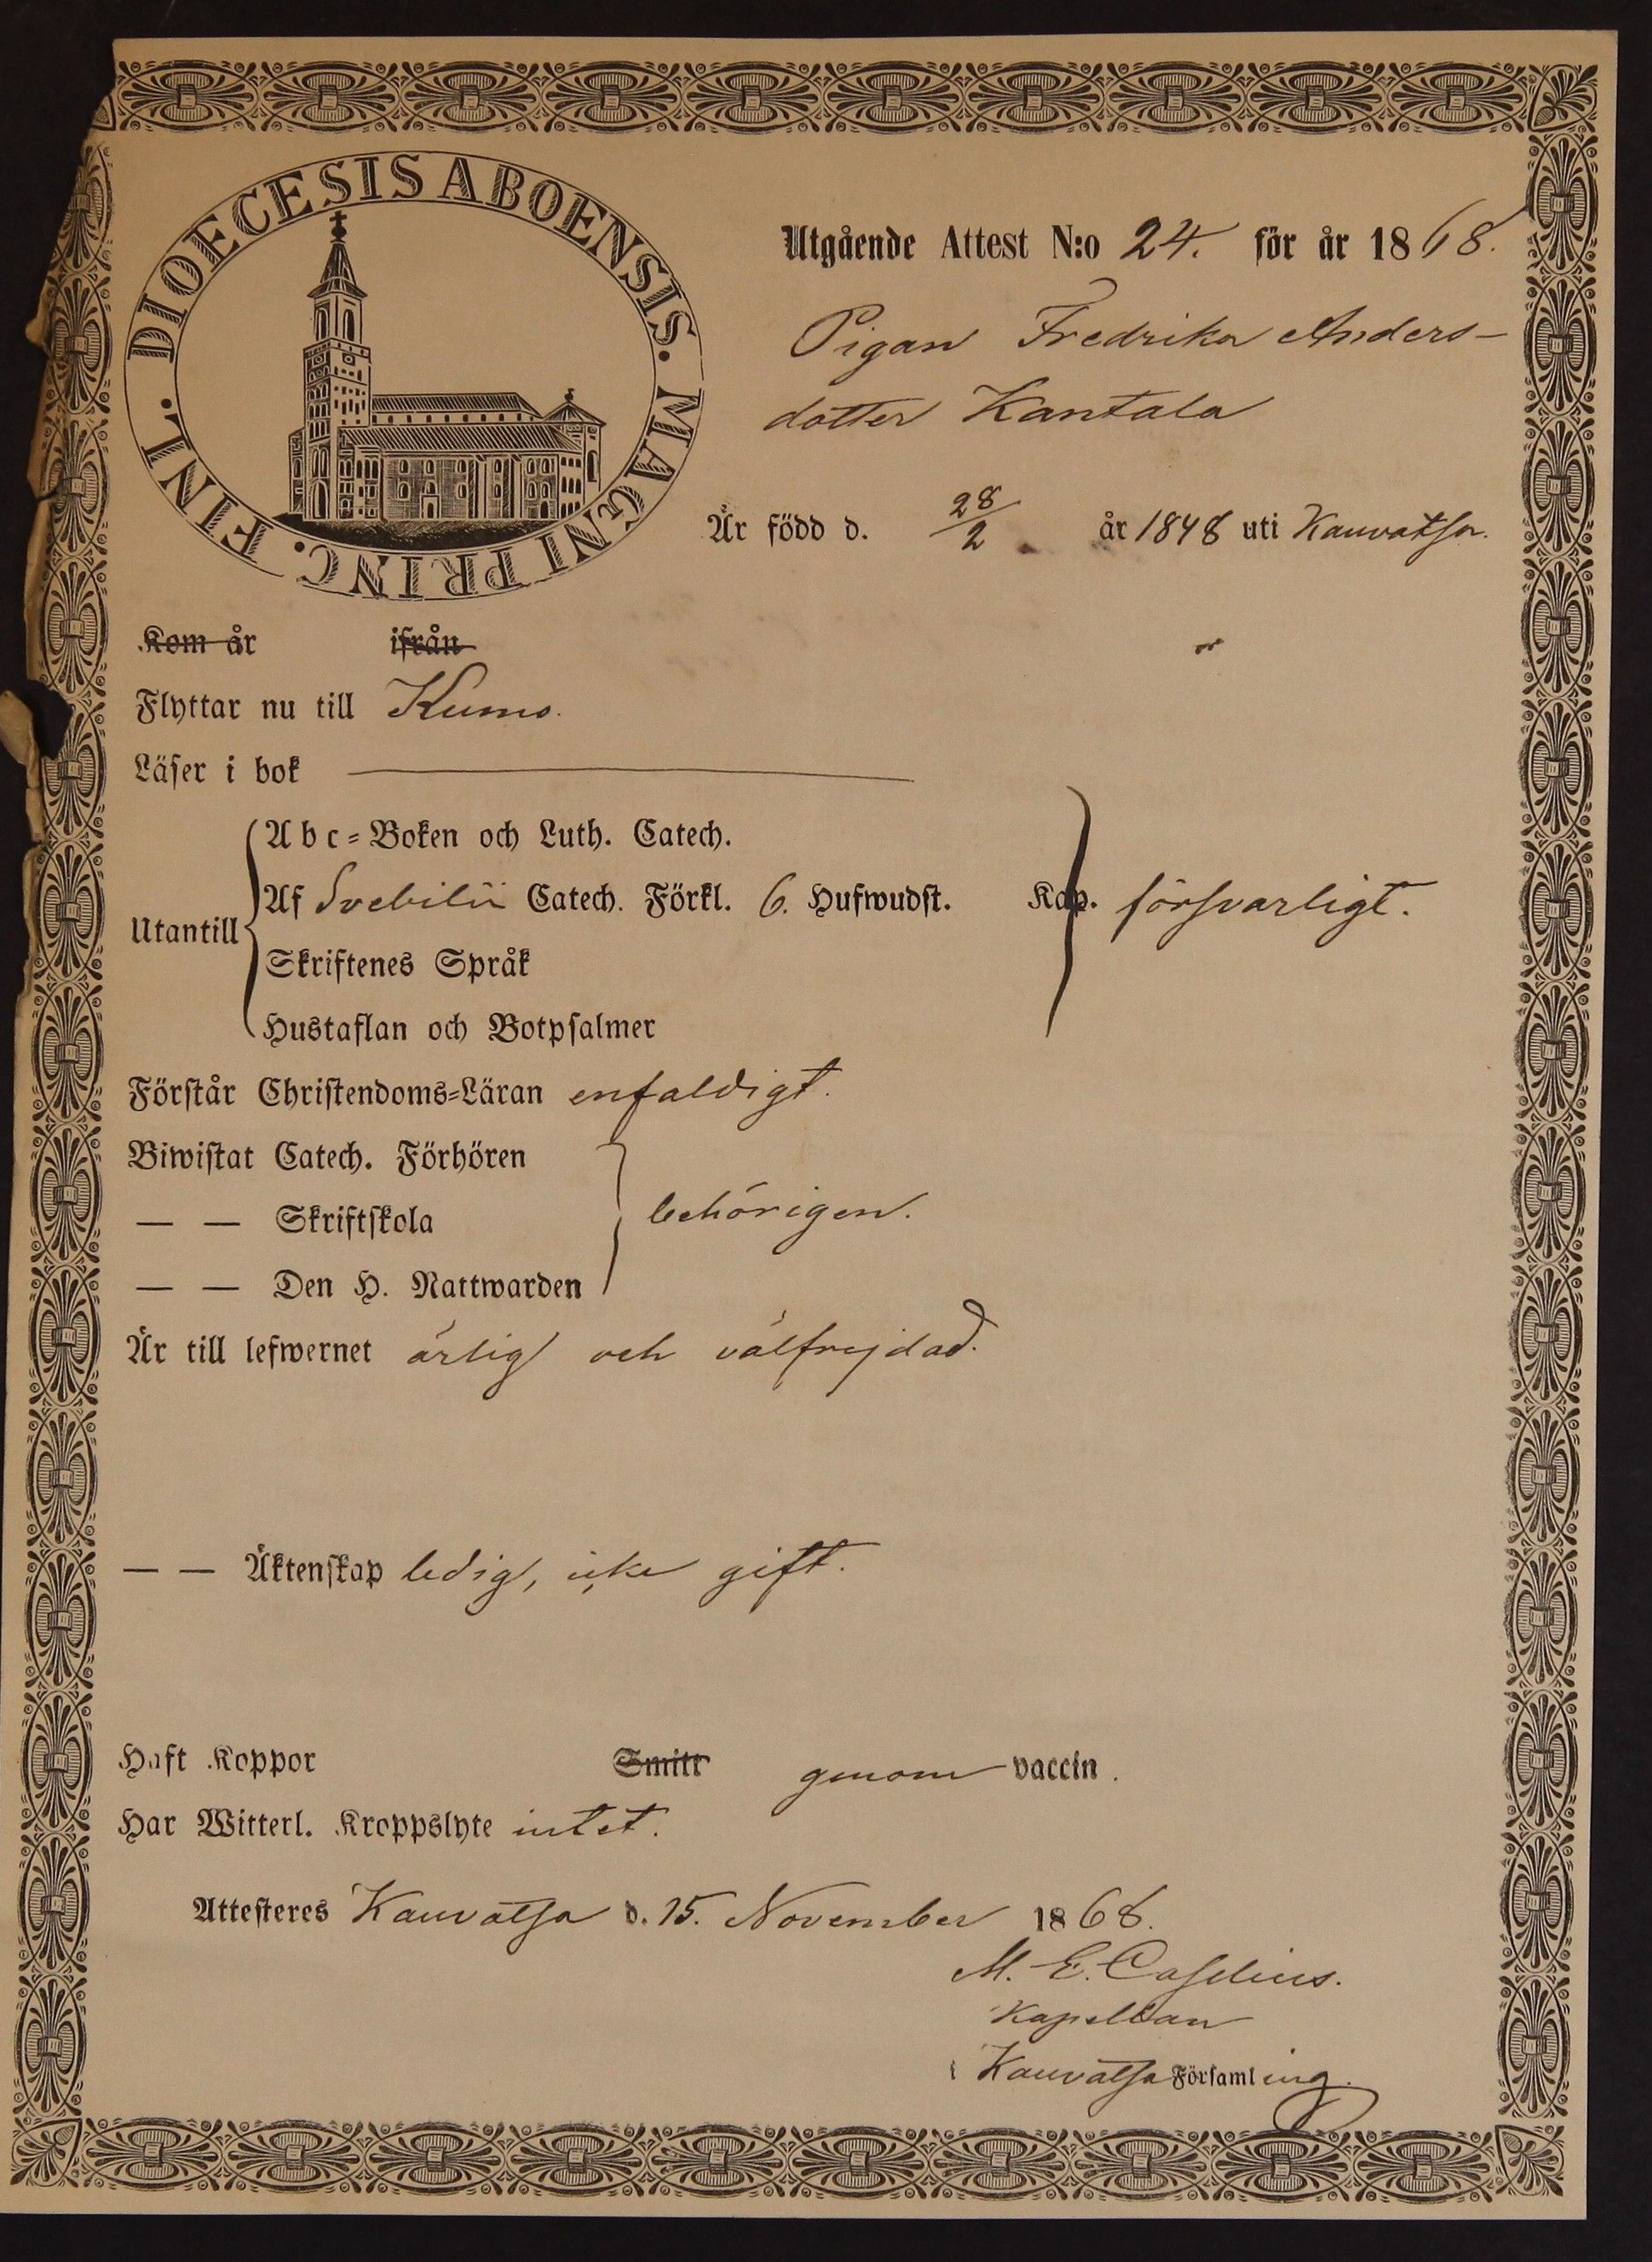 DIOECESIS ABOENSIS. MAGNI PRINC. FINL.
Utgående Attest N:o 24. för år 1868.
Pigan Fredrika Anders-
dotter Kantala
Är född d. 28/2 år 1848 uti Kauvatsa.
Kom år ifrån
Flyttar nu till Kumo.
Läser i bok
Utantill
A b c-Boken och Luth. Catech.
Af Svebilii Catech. Förkl. 6. Hufwudst. Kap. försvarligt.
Skriftenes Språk
Hustaflan och Botpsalmer
Förstår Christendoms-Läran enfaldigt.
Biwistat Catech. Förhören
— — Skriftskola behörigen.
— — Den H. Nattwarden
Är till lefwernet ärlig och välfrejdad.
— — Äktenskap ledig, icke gift.
Haft Koppor Smitt genom vaccin.
Har Witterl. Kroppslyte intet.
Attesteres Kauvatsa d. 15. November 1868.
M. E. Caselius.
Kapellan
i Kauvatsa Församling.